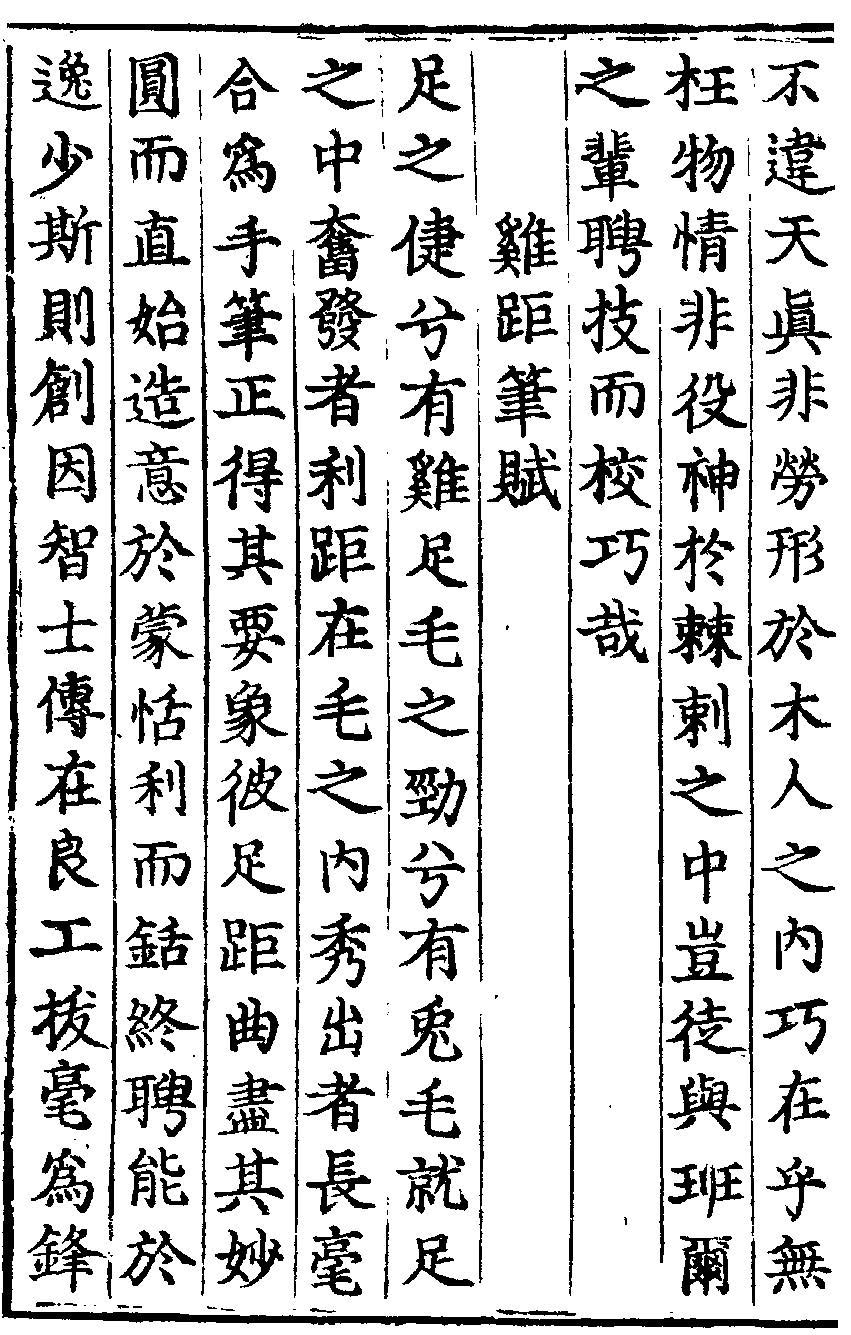 不違天眞非勞形於木人之內巧在乎無
枉物情非役神於棘刺之中豈徒與班爾
之輩聘技而校巧哉
雞距筆賦
足之倢兮有雞足毛之勁兮有兎毛就足
之中奮發者利距在毛之內秀出者長毫
合爲手筆正得其要象彼足距曲盡其妙
圓而直始造意於蒙恬利而銛終聘能於
逸少斯則創因智士傳在良工拔毫爲鋒